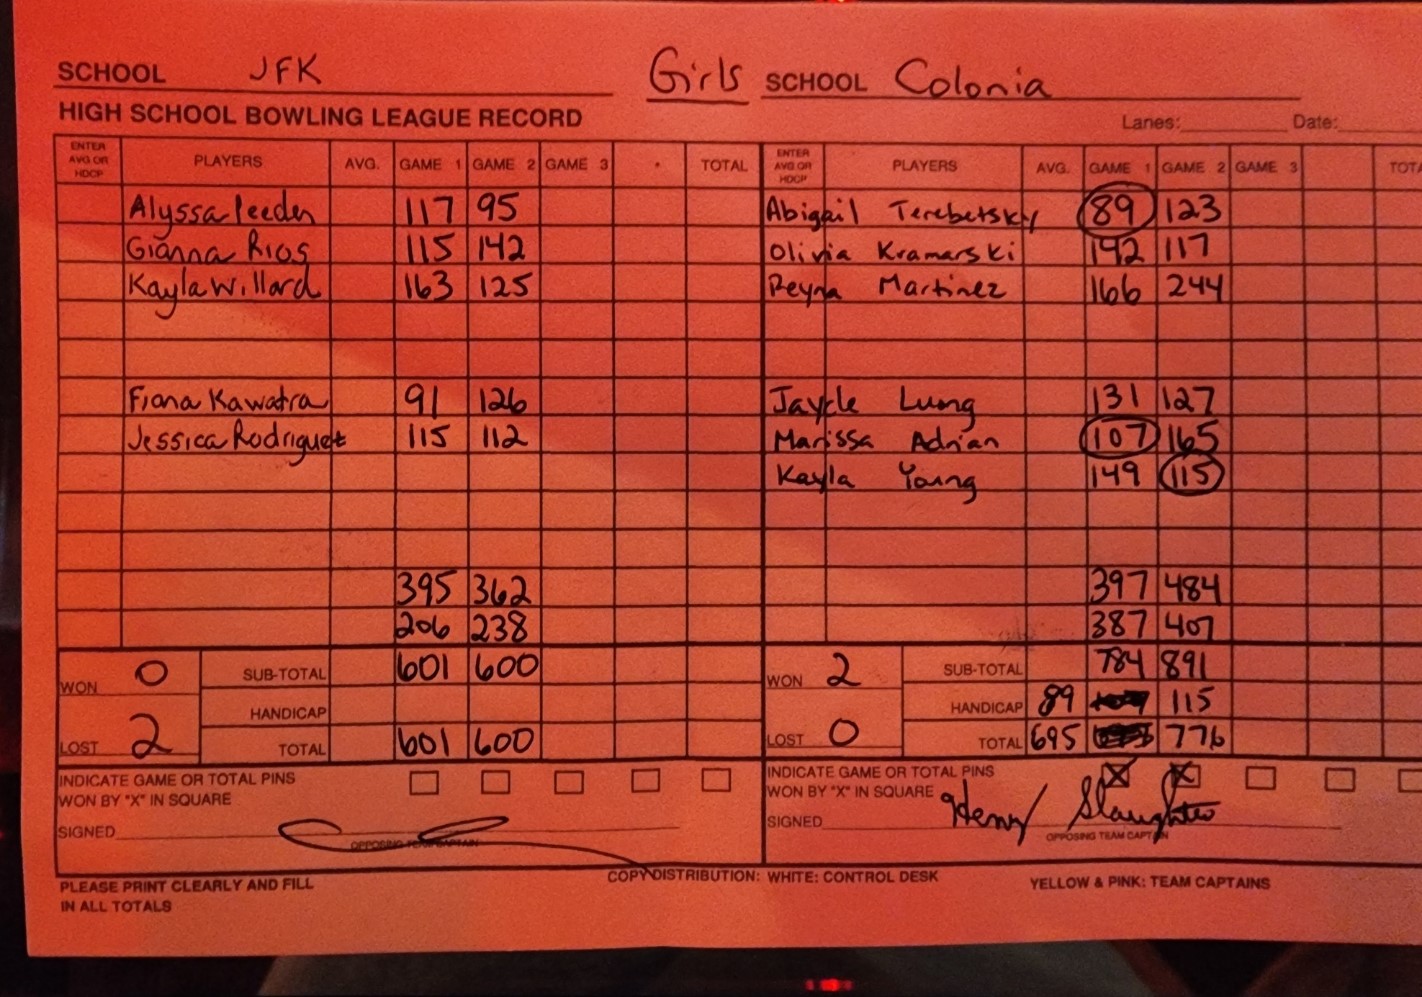 SCHOOL JFK Girls SCHOOL Colonia
HIGH SCHOOL BOWLING LEAGUE RECORD Lanes: Date:
ENTER AVG OR HDCP PLAYERS AVG. GAME 1 GAME 2 GAME 3 TOTAL ENTER AVG OR HDCP PLAYERS AVG. GAME 1 GAME 2 GAME 3
Alyssa Peeden 117 95 Abigail Terebetsky 89 123
Gianna Rios 115 142 Olivia Kramarski 142 117
Kayla Willard 163 125 Reyna Martinez 166 244
Fiona Kawatra 91 126 Jayde Lung 131 127
Jessica Rodriguez 115 112 Marissa Adrian 107 165
Kayla Young 149 115
395 362 397 484
206 238 387 407
WON 0 SUB-TOTAL 601 600 WON 2 SUB-TOTAL 784 891
HANDICAP HANDICAP 89 115
LOST 2 TOTAL 601 600 LOST 0 TOTAL 695 776
INDICATE GAME OR TOTAL PINS INDICATE GAME OR TOTAL PINS X X
WON BY "X" IN SQUARE WON BY "X" IN SQUARE
SIGNED SIGNED Henry Slaughter
OPPOSING TEAM CAPTAIN OPPOSING TEAM CAPTAIN
PLEASE PRINT CLEARLY AND FILL COPY DISTRIBUTION: WHITE: CONTROL DESK YELLOW & PINK: TEAM CAPTAINS
IN ALL TOTALS